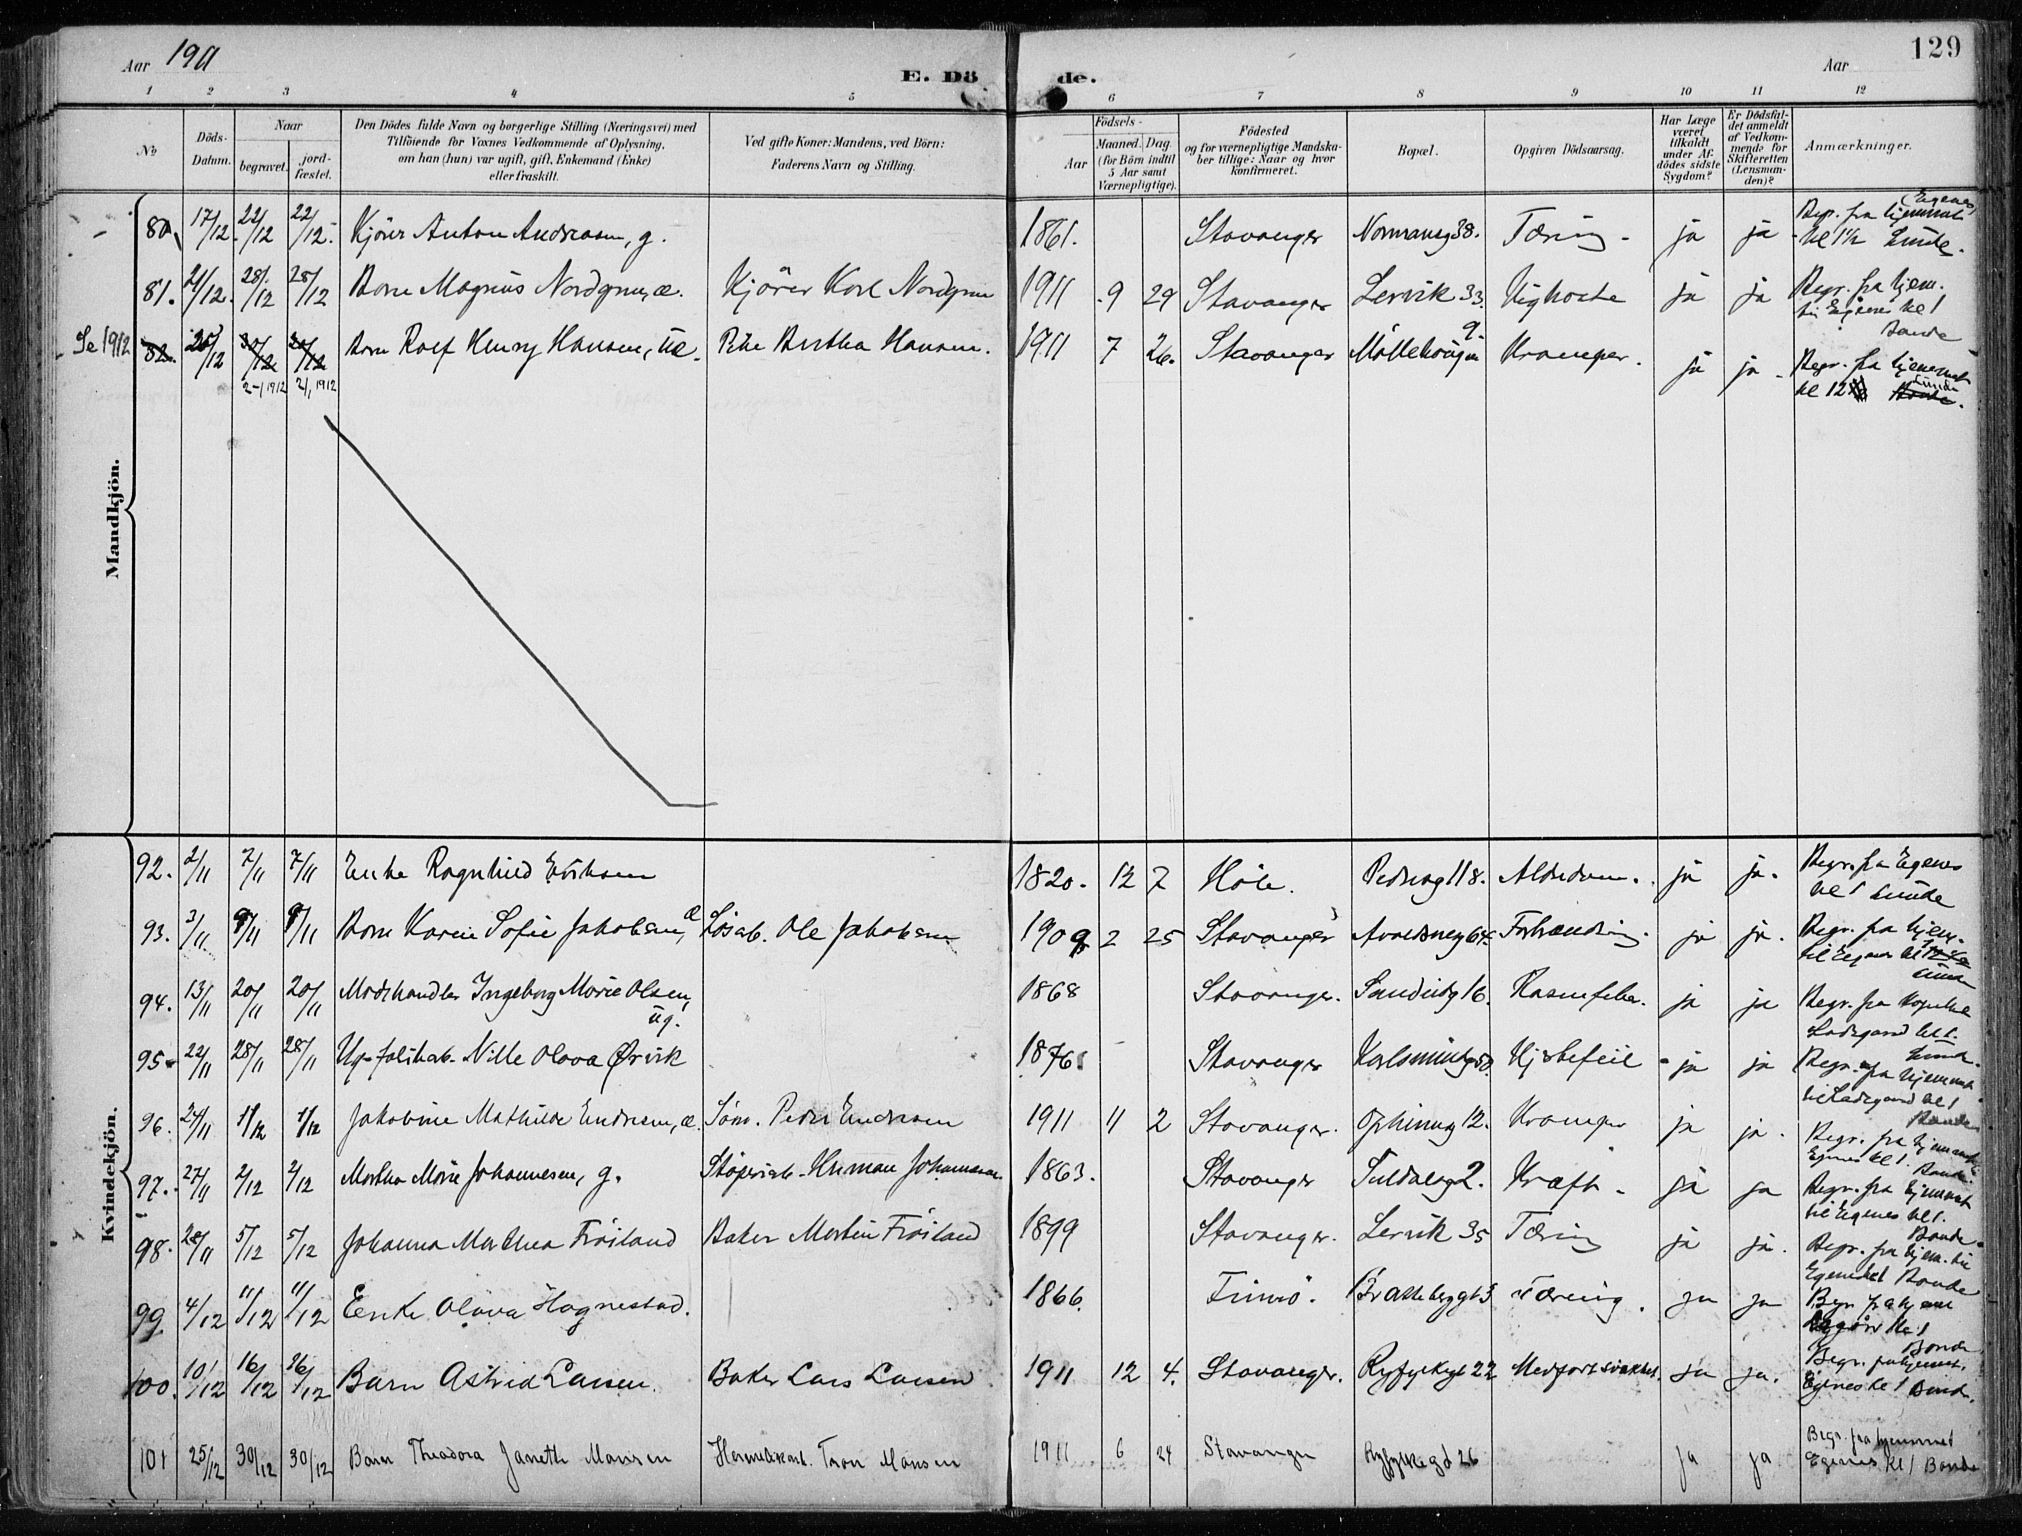 Aar 1911
E. Dö
de.
Aar
129
1 2 3 4 5 6 7 8 9 10 11 12
No
Döds-Datum.
Naar
begravet.
jord-fæstet.
Den Dödes fulde Navn og borgerlige Stilling (Næringsvei) med
Tilföiende for Voxnes Vedkommende af Oplysning,
om han (hun) var ugift, gift, Enkemand (Enke)
eller fraskilt.
Ved gifte Koner: Mandens, ved Börn:
Faderens Navn og Stilling.
Födsels-
Aar
Maaned. Dag.
(for Börn indtil
5 Aar samt
Værnepligtige).
Födested
og for værnepligtige Mandska-
ber tillige: Naar og hvor
konfirmeret.
Bopæl.
Opgiven Dödsaarsag.
Har Læge
været
tilkaldt
under Af-
dödes sidste
Sygdom?
Er Dödsfal-
det anmeldt
af Vedkom-
mende for
Skifteretten
(Lensman-
den)?
Anmærkninger.
Mandkjön.
80. 17/12. 22/12 22/12. Kjörer Anton Andreasen, g. 1861. Stavanger Normansg 38. Tæring ja ja Begr. fra hjemmet (Egenes) kl 1½ Lunde.
81. 21/12. 28/12 28/12 Barn Magnus Nordgren, æ. Kjörer Karl Nordgren 1911 9 29 Stavanger Lervik 33. Kighoste ja ja Begr. fra hjem. til Egenes kl 1 Bonde
Se 1912 82. 20/12 30/12 30/12 Barn Rolf Henry Hansen, ue. Pike Bertha Hansen. 1911 7 26. Stavanger Krampe. ja ja Begr. fra hjemmet kl 12 Bonde. Lunde
2-/1 1912 2/1 1912
Kvindekjön.
92. 2/11 7/11 7/11 Enke Ragnhild Eriksen 1820. 12 7 Høle. Pedersg 118. Alderdom. ja ja. Begr. fra Egenes kl 1 Lunde
93. 3/11 9/11 9/11 Barn Karen Sofie Jakobsen, æ Løsarb. Ole Jakobsen 1909 2 25 Stavanger Avaldsneg 64. ja ja. Begr. fra hjem. til Egenes kl 1 Lunde
94. 13/11 20/11 20/11 Modehandler Ingeborg Marie Olsen, ug. 1868 Stavanger. 16. ja ja Begr. fra Kapellet Ladegaard kl 1. Lunde
95. 22/11 28/11 28/11 Ug. Nille Olava Ørvik 1876. Stavanger 50. Hjertefeil ja ja Begr. fra hjemmet til Ladegaard kl 1 Bonde
96. 24/11 1/12 1/12 Jakobine Mathilde Endresen, æ. Søm. Peder Endresen 1911 11 2 Stavanger. 12. Krampe ja ja. Begr. fra hjemmet Egenes kl 1. Bonde.
97. 27/11 2/12 2/12 Martha Marie Johannesen, g. Støperiarb. Herman Johannesen 1863. Stavanger Suldalsg 2. Kræft ja ja Begr. fra hjemmet til Egenes kl 1. Bonde
98. 28/11 5/12 5/12 Johanna Marthea Fröiland Baker Martin Fröiland 1899 Stavanger. Lervik 35 Tæring ja ja. Begr. fra hjem. til Egenes kl Bonde
99 4/12 11/12 11/12 Enke Olava Hognestad. 1866. Finnö. Brattebergt 3 Tæring. ja ja Begr. fra hjem kl 1 Bonde
100. 10/12 16/12 16/12 Barn Astrid Larsen. Baker Lars Larsen 1911 12 4. Stavanger. Ryfylkegt 22 Medfört svakhet. ja ja. Begr. fra hjemmet. Egenes kl 1 Bonde.
101 25/12 30/12 30/12 Barn Theodora Janette Monsen Hermetikarb. Tron Monsen 1911 6 24 Stavanger Ryfylkegd 26 ja ja Begr. fra hjemmet Egenes kl 1 Bonde